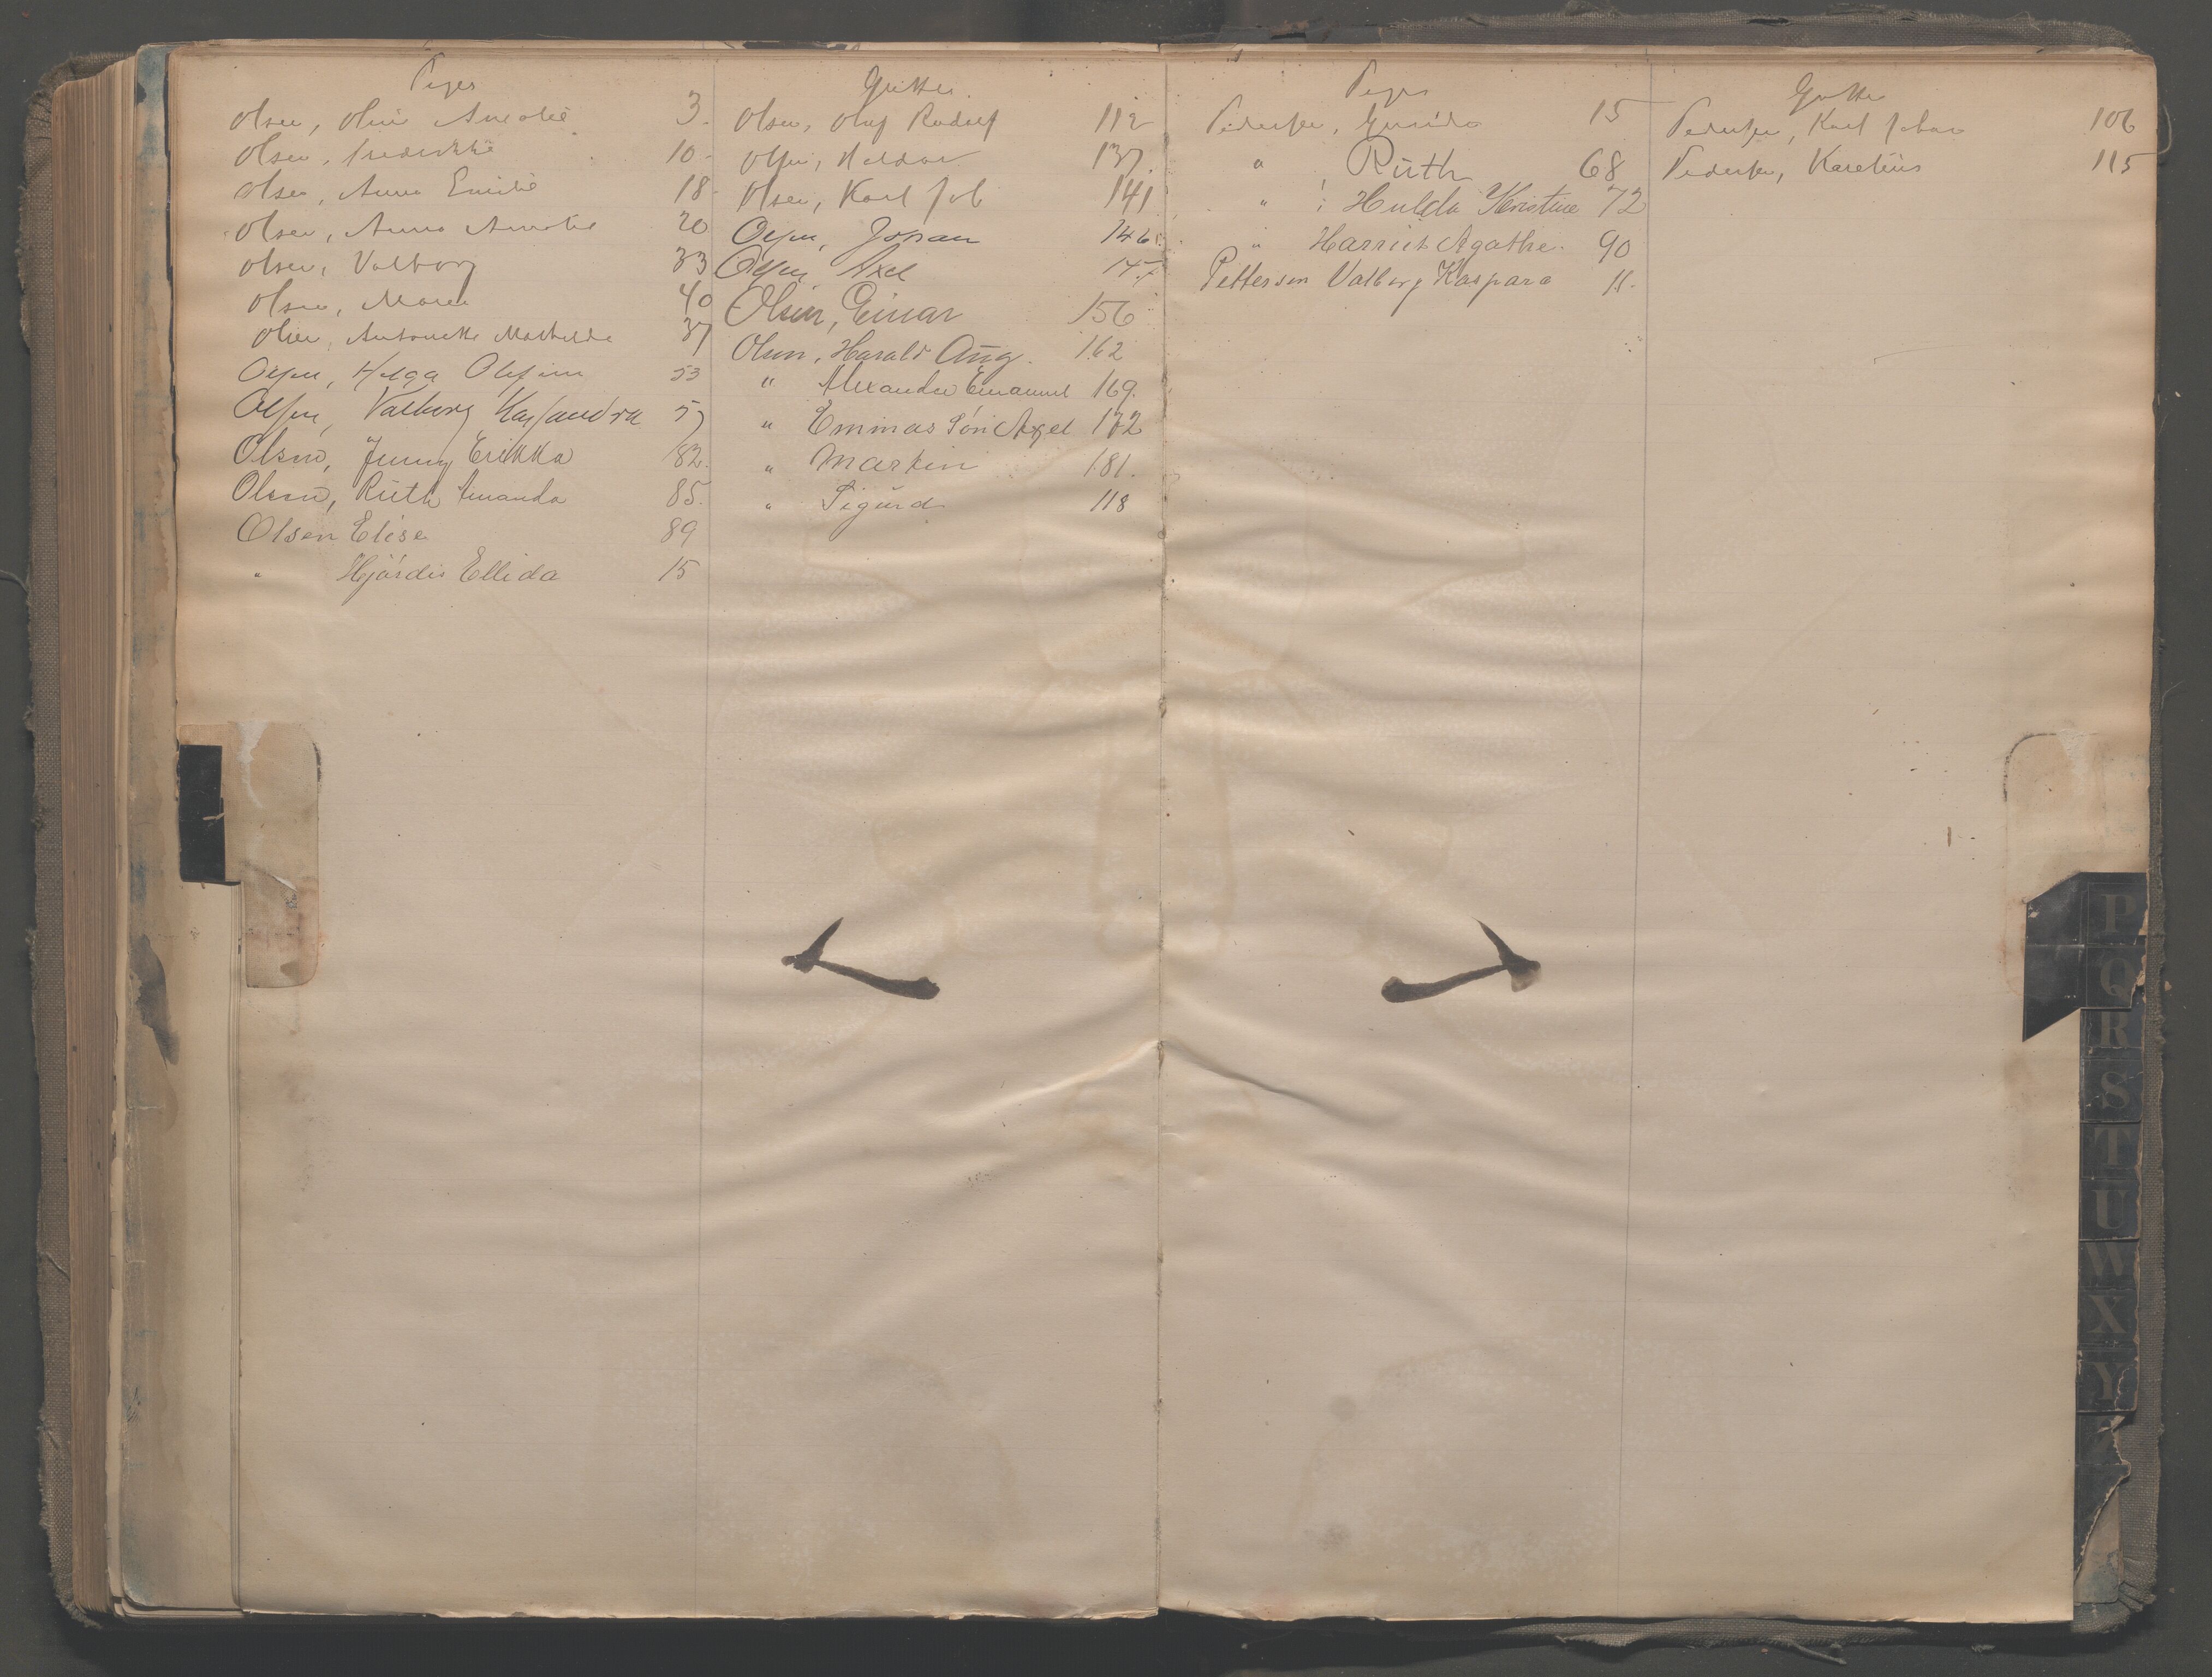 Piger
Olsen, Olivia Amalie 3.
Olsen, Fredrikke 10.
Olsen, Anna Emilie 18
Olsen, Anna Amalie 20
Olsen, Valborg 33
Olsen, Maren 40
Olsen, Antonette Mathilde 37
Olsen, Helga Olefine 53
Olsen, Valborg Kassandra 57
Olsen, Jenny Erikka 82.
Olsen, Ruth Amanda 85.
Olsen Elise 89
" Hjørdis Ellida 15
Gutter
Olsen, Olaf Rudolf 112
Olsen, Haldor 137.
Olsen, Karl Joh 141
Olsen, Johan 146
Olsen, Axel
Olsen, Einar 156
Olsen, Harald Aug. 162
" Alexander Emanuel 169.
" Emmas Søn Axel 172
" Martin 181.
" Sigurd 118
Piger
Pedersen, Gunda 15
" , Ruth 68
" , Hulda Kristine 72
" Harriet Agathe. 90
Petterson Valborg Kaspara 11.
Gutter
Pedersen, Karl Johan 106
Pedersen, Karelius 115
P
Q
R
S
T
U
W
X
Y
Z